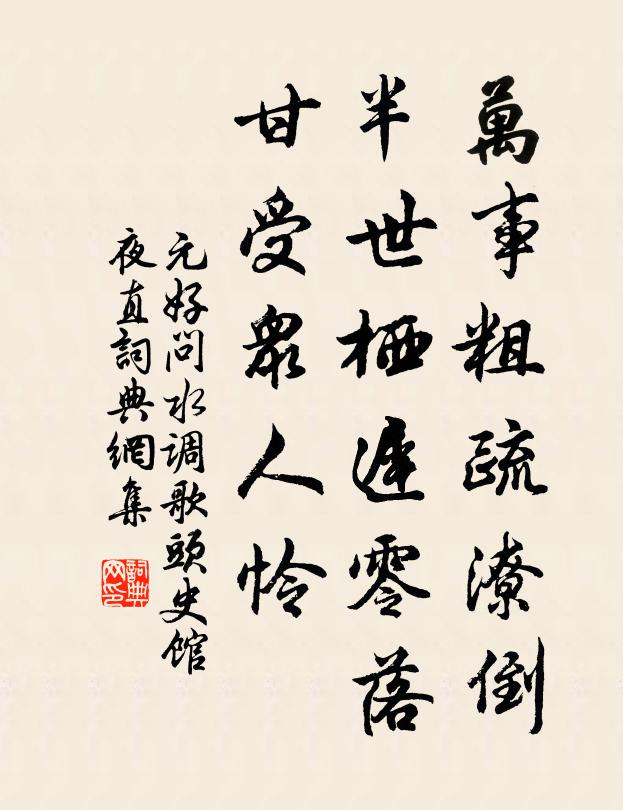 萬事粗疏潦倒
半世栖遲零落
甘受衆人怜
元好问水调歌頭史馆
夜直詞典網集
詞典网印